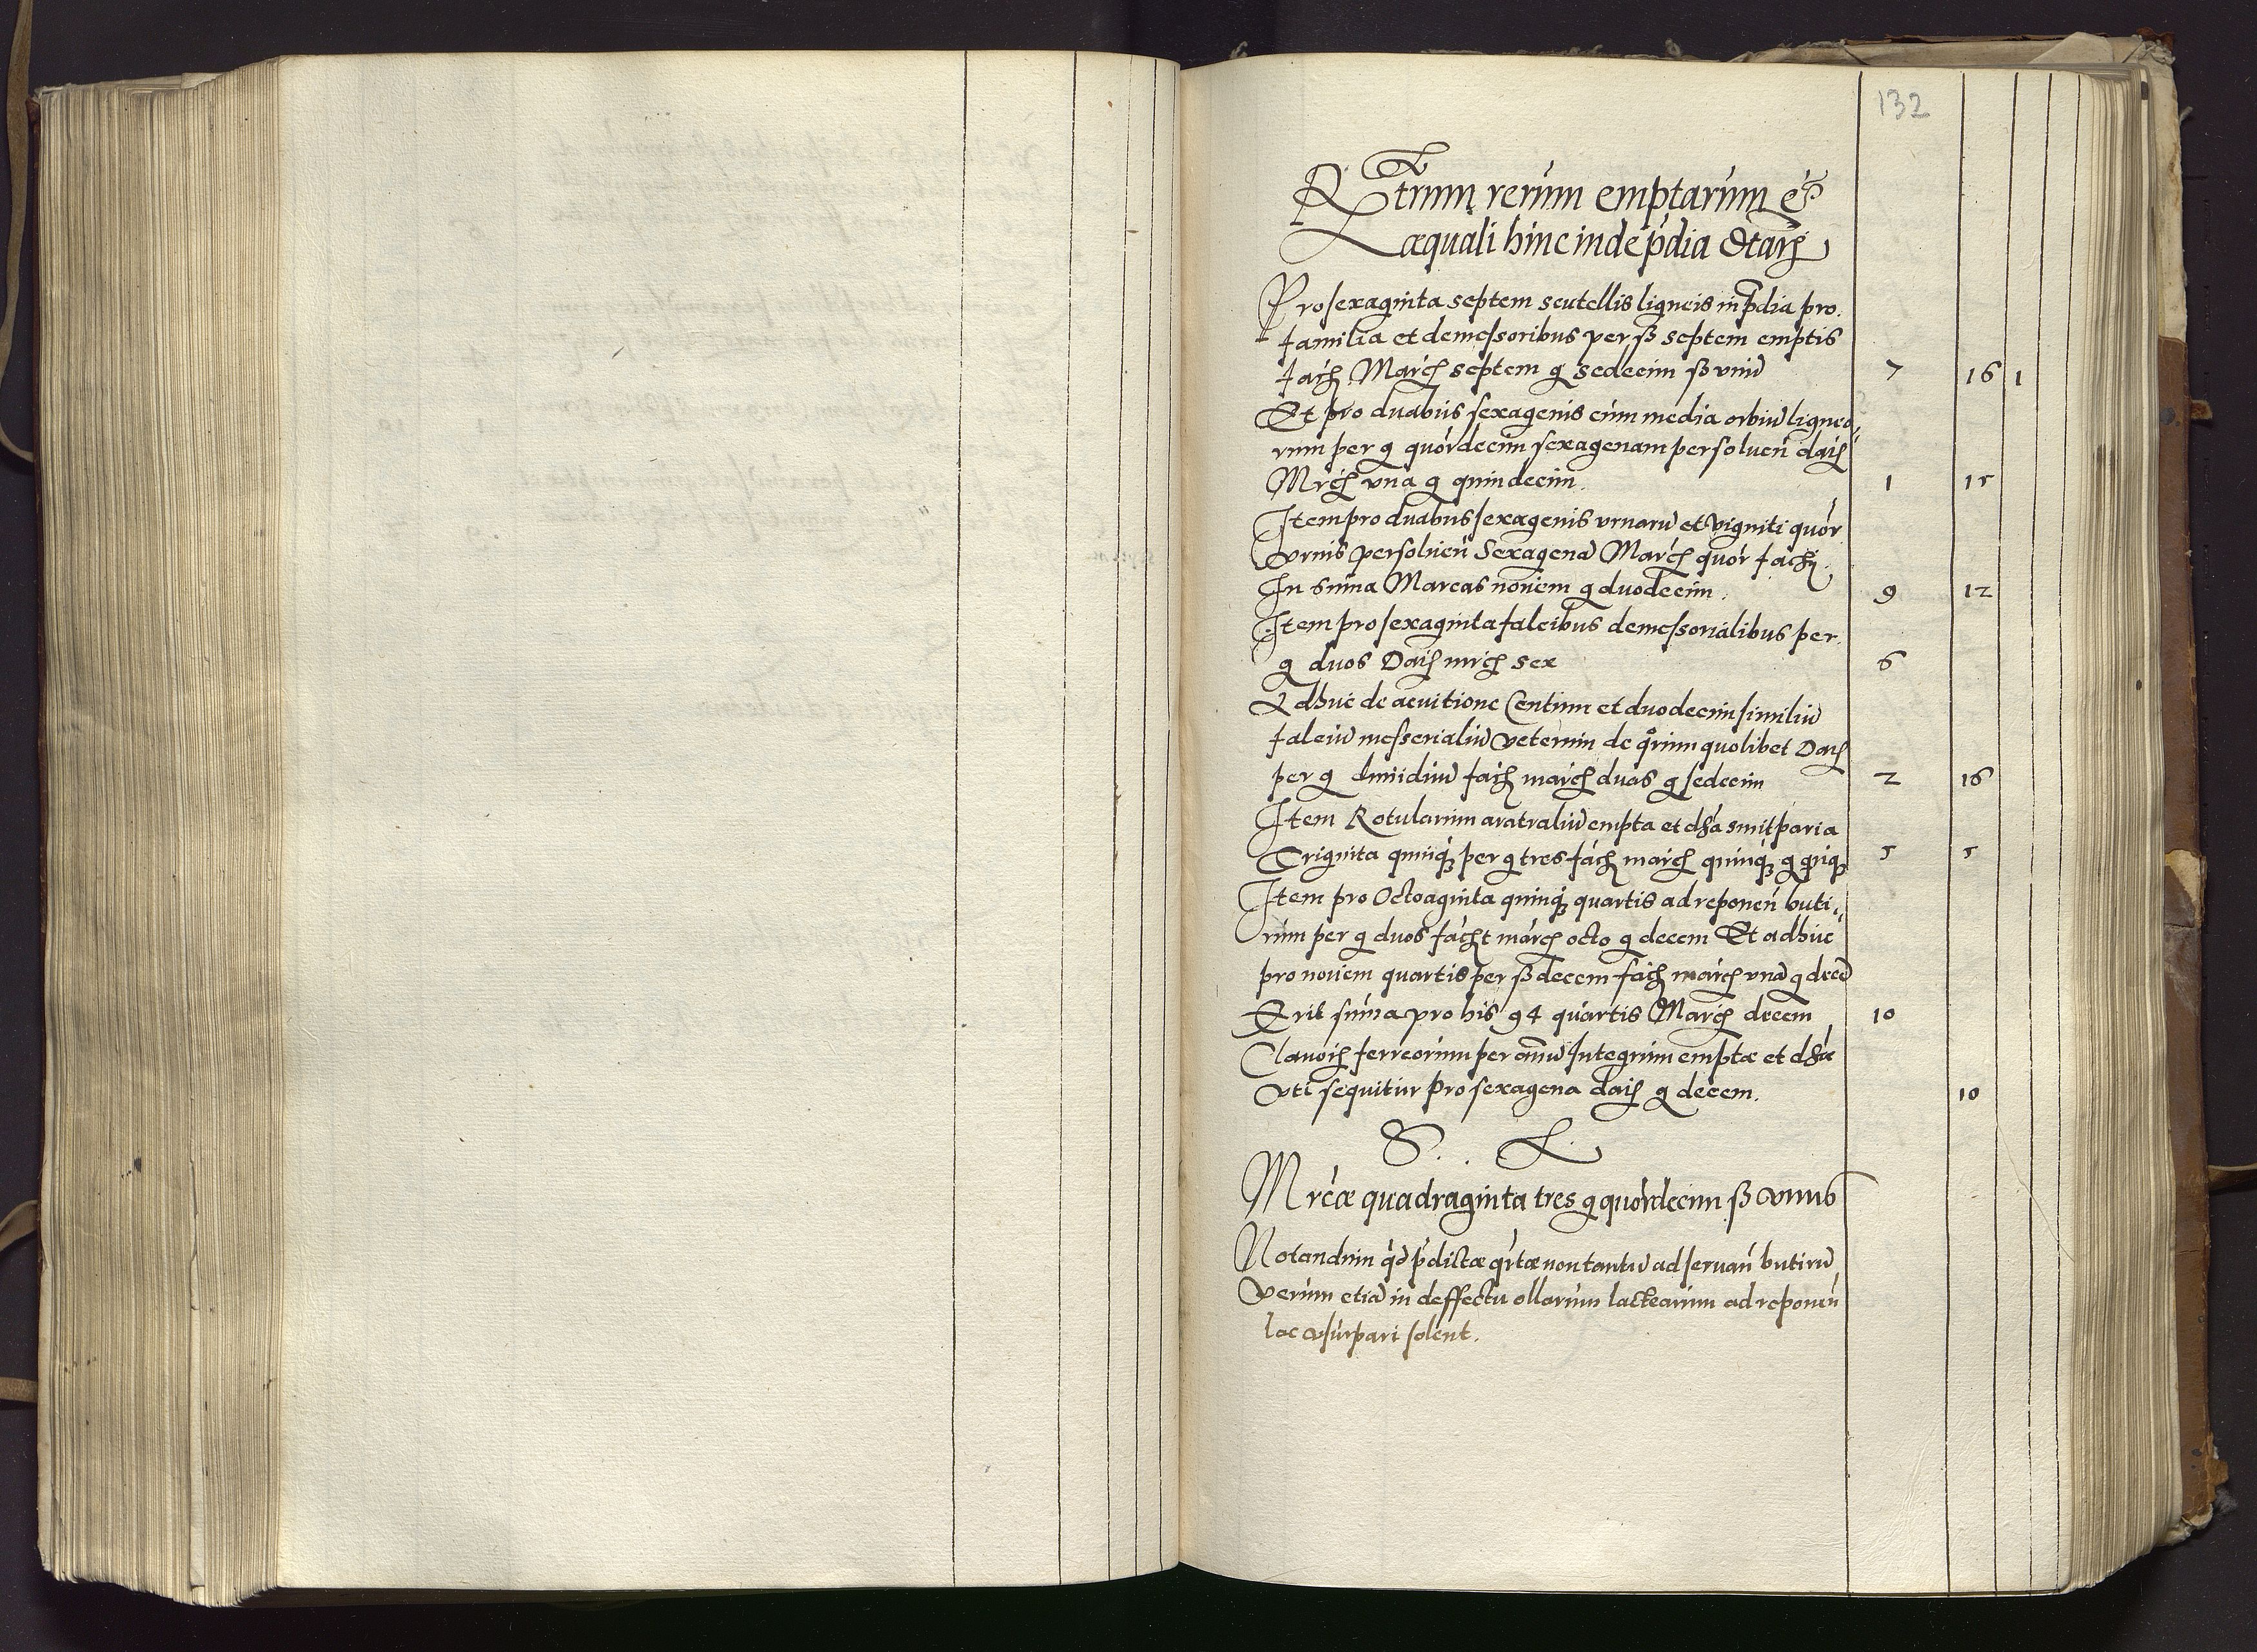 132
Rerum rerum emptarum et
æquali hinc inde p̄dia
Pro sexaginta septem scutellis ligneis in p̄dia pro
familia et demessoribus per ß septem emptis
facit March septem g sedecim ß unu 7 16 1
Et pro duabus sexagenis cum media orbiu ligneo„
rum per g quórdecim sexagenam persoluen̄ datis
Mrch una g quindecim. 1 15
Item pro duabus sexagenis vrnaru et Vigniti quór
vrnis persoluen̄ Sexagena March quór
In suma Marcas nouem g duodecim. 9 12
Item pro sexaginta falcibus demessorialibus per
g duos Datis mrch sex 6
Adhuc de acuitione Centum et duodecim similiu
falciu messerialiu veterum de quorum quolibet Datis
per g dimidiu March duas g sedecim 2 16
Item Rotularum aratraliu empta et data sunt paria
Triginta quinq; per g tres march quinq; g quinq; 5 5
Item pro Octoaginta quinq; quartis ad reponen̄ buti„
rum per g duos march octo g decem Et adhuc
pro nouem quartis per ß decem march una g dece
Erit suma pro his 94 quartis March decem 10
Clauorum ferreorum per annu Integrum emptæ et datæ
vti sequitur pro sexagena datis g decem. 10
S. . L.
Mrcæ quadraginta tres g quórdecim ß vnus
Notandum qd p̄dictæ qrtæ non tantu ad seruan̄ butiru
Verum etia in deffectu ollarum lactearum ad reponen̄
lac vsurpari solent.